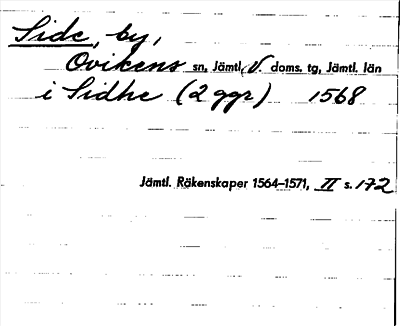 Side, by,
Ovikens sn, Jämtl. V. doms. tg, Jämtl. län
i Sidhe (2 ggr) 1568
Jämtl. Räkenskaper 1564–1571, II s. 172